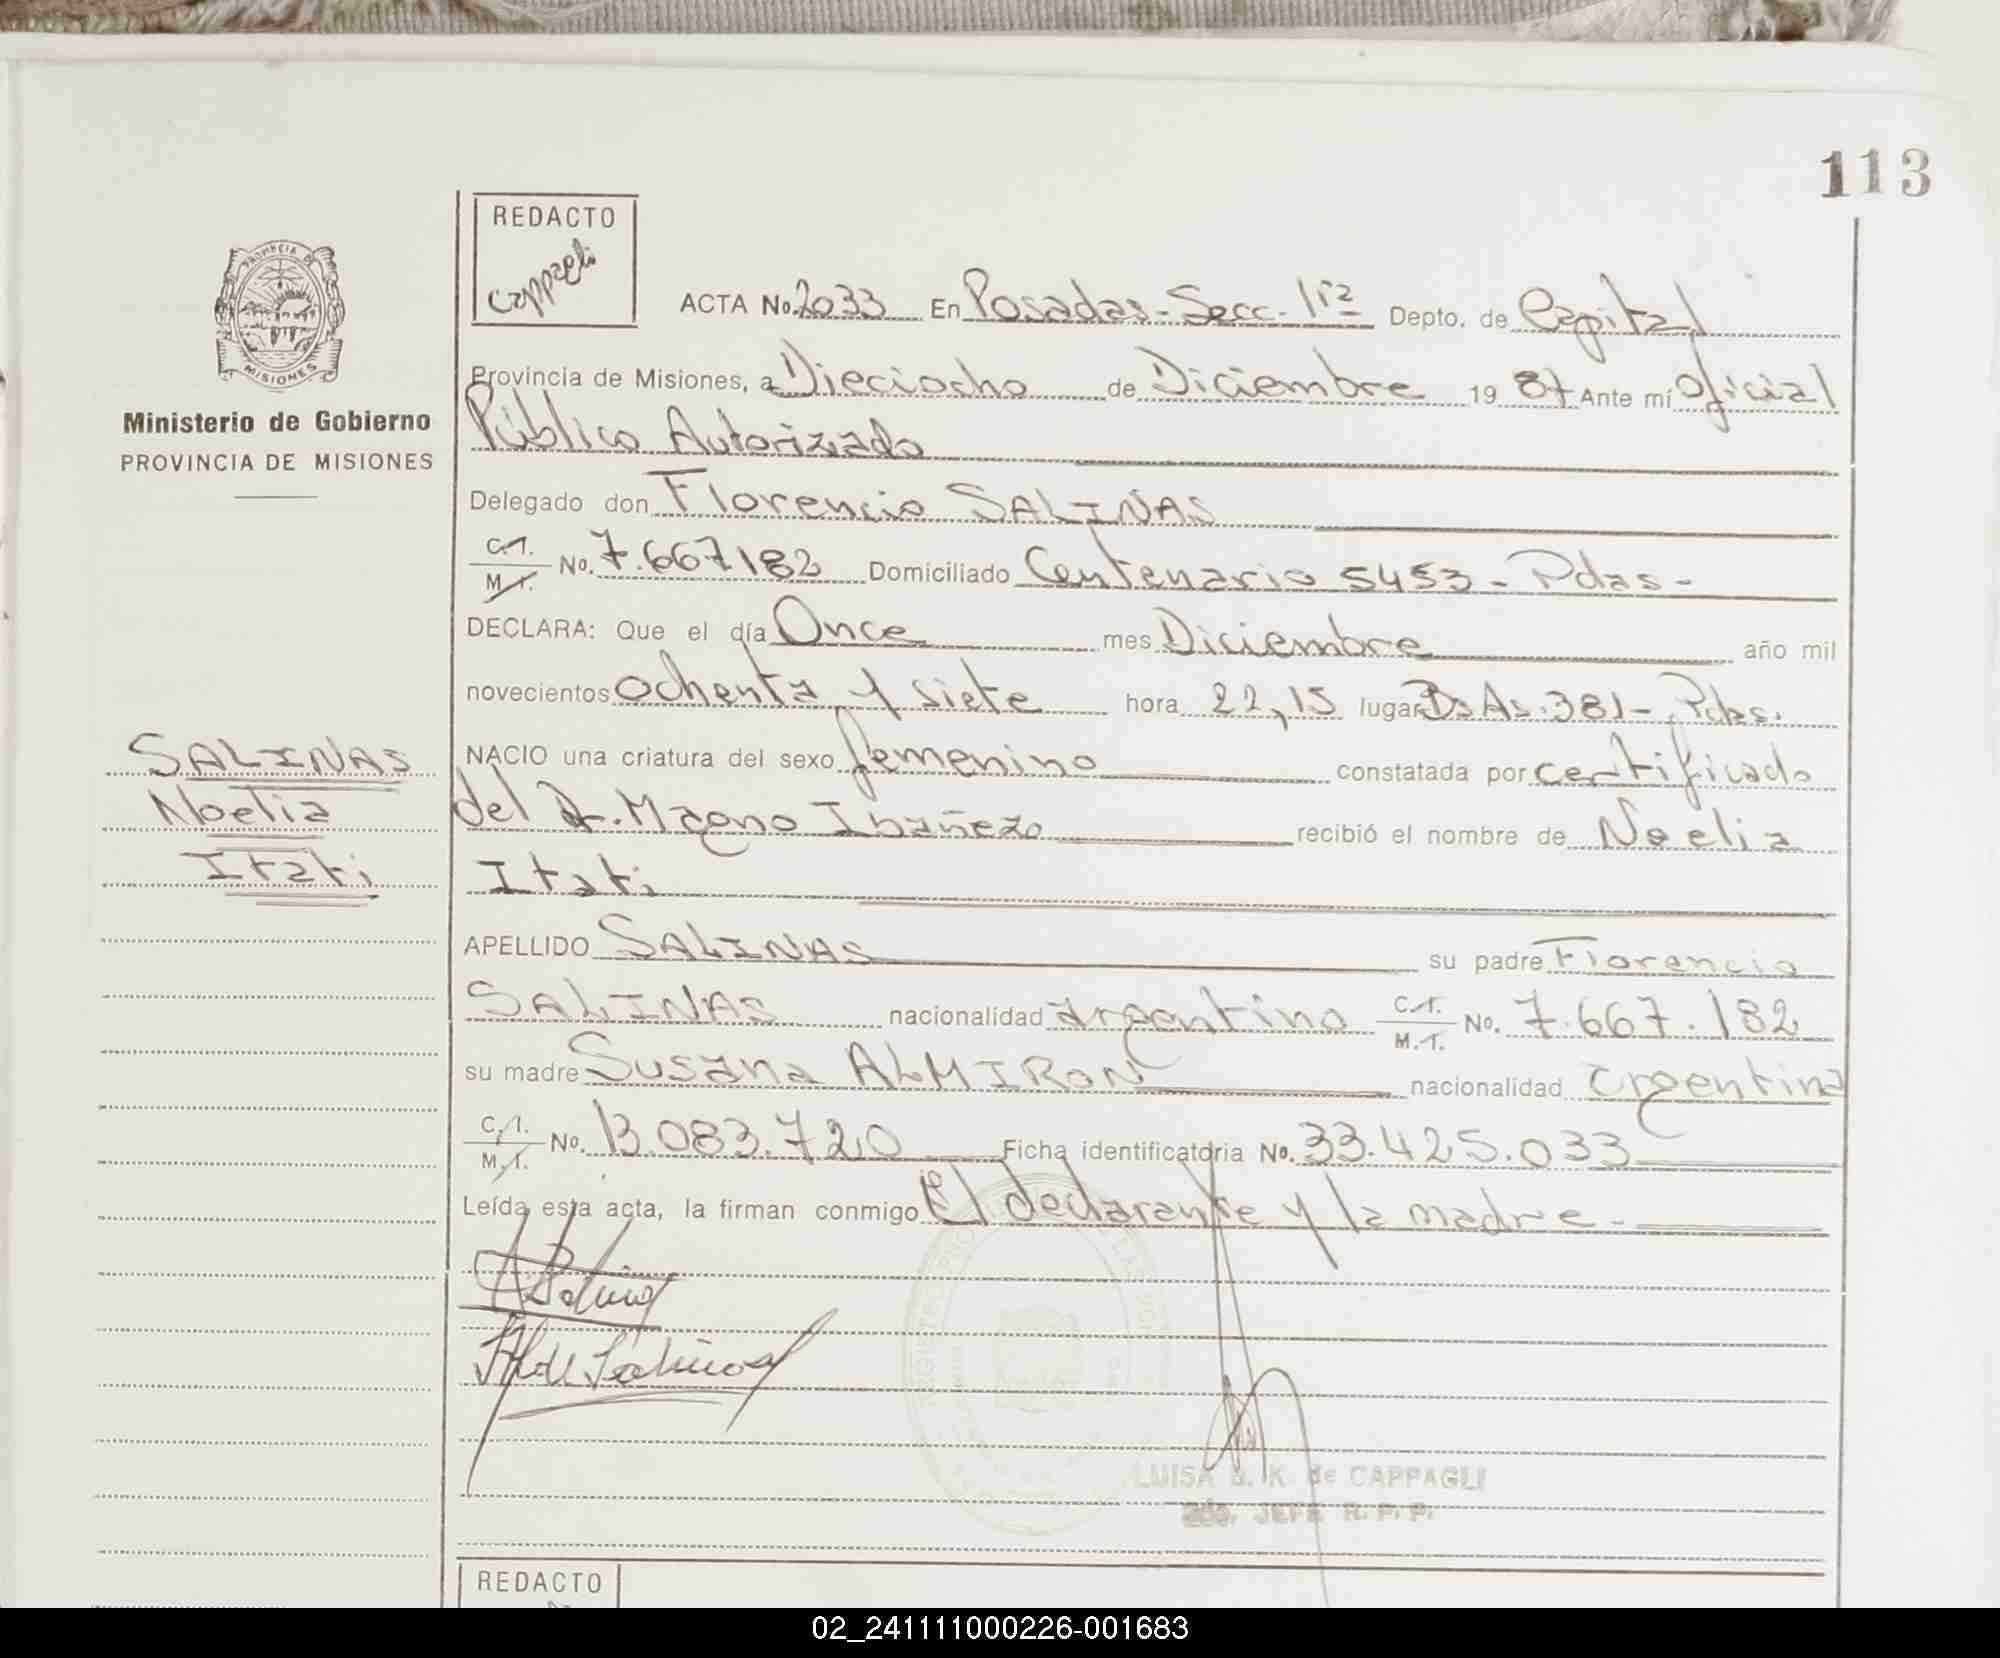 113
REDACTO
Cappagli
PROVINCIA DE
MISIONES
Ministerio de Gobierno
PROVINCIA DE MISIONES
ACTA No. 2033 En Posadas - Secc. 1ra Depto. de Capital
Provincia de Misiones, a Dieciocho de Diciembre 19 87 Ante mí Oficial
Público Autorizado
Delegado don Florencio SALINAS
C.I.
M.I. No. 7.667182 Domiciliado Centenario 5453 - Pdas -
DECLARA: Que el día Once mes Diciembre año mil
novecientos ochenta y siete hora 22,15 lugar Bs As. 381 - Pdas.
NACIO una criatura del sexo femenino constatada por certificado
del Dr. Magno Ibañez recibió el nombre de Noelia
Itati
SALINAS
Noelia
Itati
APELLIDO SALINAS su padre Florencio
SALINAS nacionalidad argentino C.I. M.I. No. 7.667.182
su madre Susana ALMIRON nacionalidad argentina
C.I.
M.I. No. 13.083.720 Ficha identificatoria No. 33.425.033
Leída esta acta, la firman conmigo El declarante y la madre -
LUISA B. K. de CAPPAGLI
2do. JEFE R. P. P.
REDACTO
02_241111000226-001683